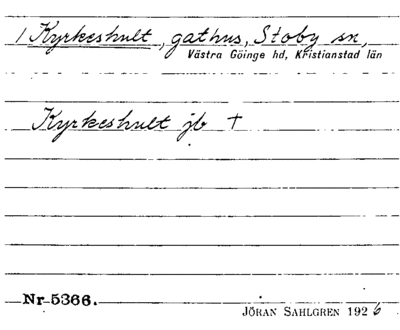 1 Kyrkeshult, gathus, Stoby sn,
Västra Göinge hd, Kristianstad län
Kyrkeshult jb †
Nr 5366.
JÖRAN SAHLGREN 1926